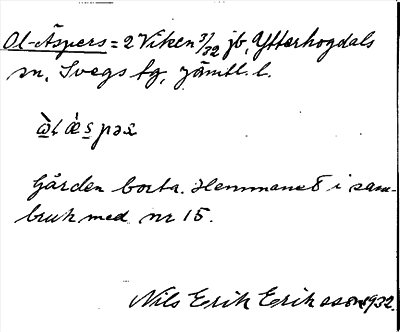 Ol-Äspers = 2 Viken 3/32 jb, Ytterhogdals
sn, Svegs tg, Jämtl. l.
Gården borta. Hemmanet i sam-
bruk med nr 15.
Nils Erik Eriksson 1932.